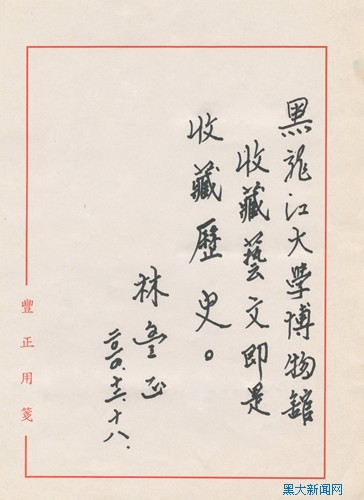 黑龍江大學博物館
收藏藝文即是
收藏歷史。
林豐正
二〇一〇.十二.十八.
豐正用箋
黑大新闻网